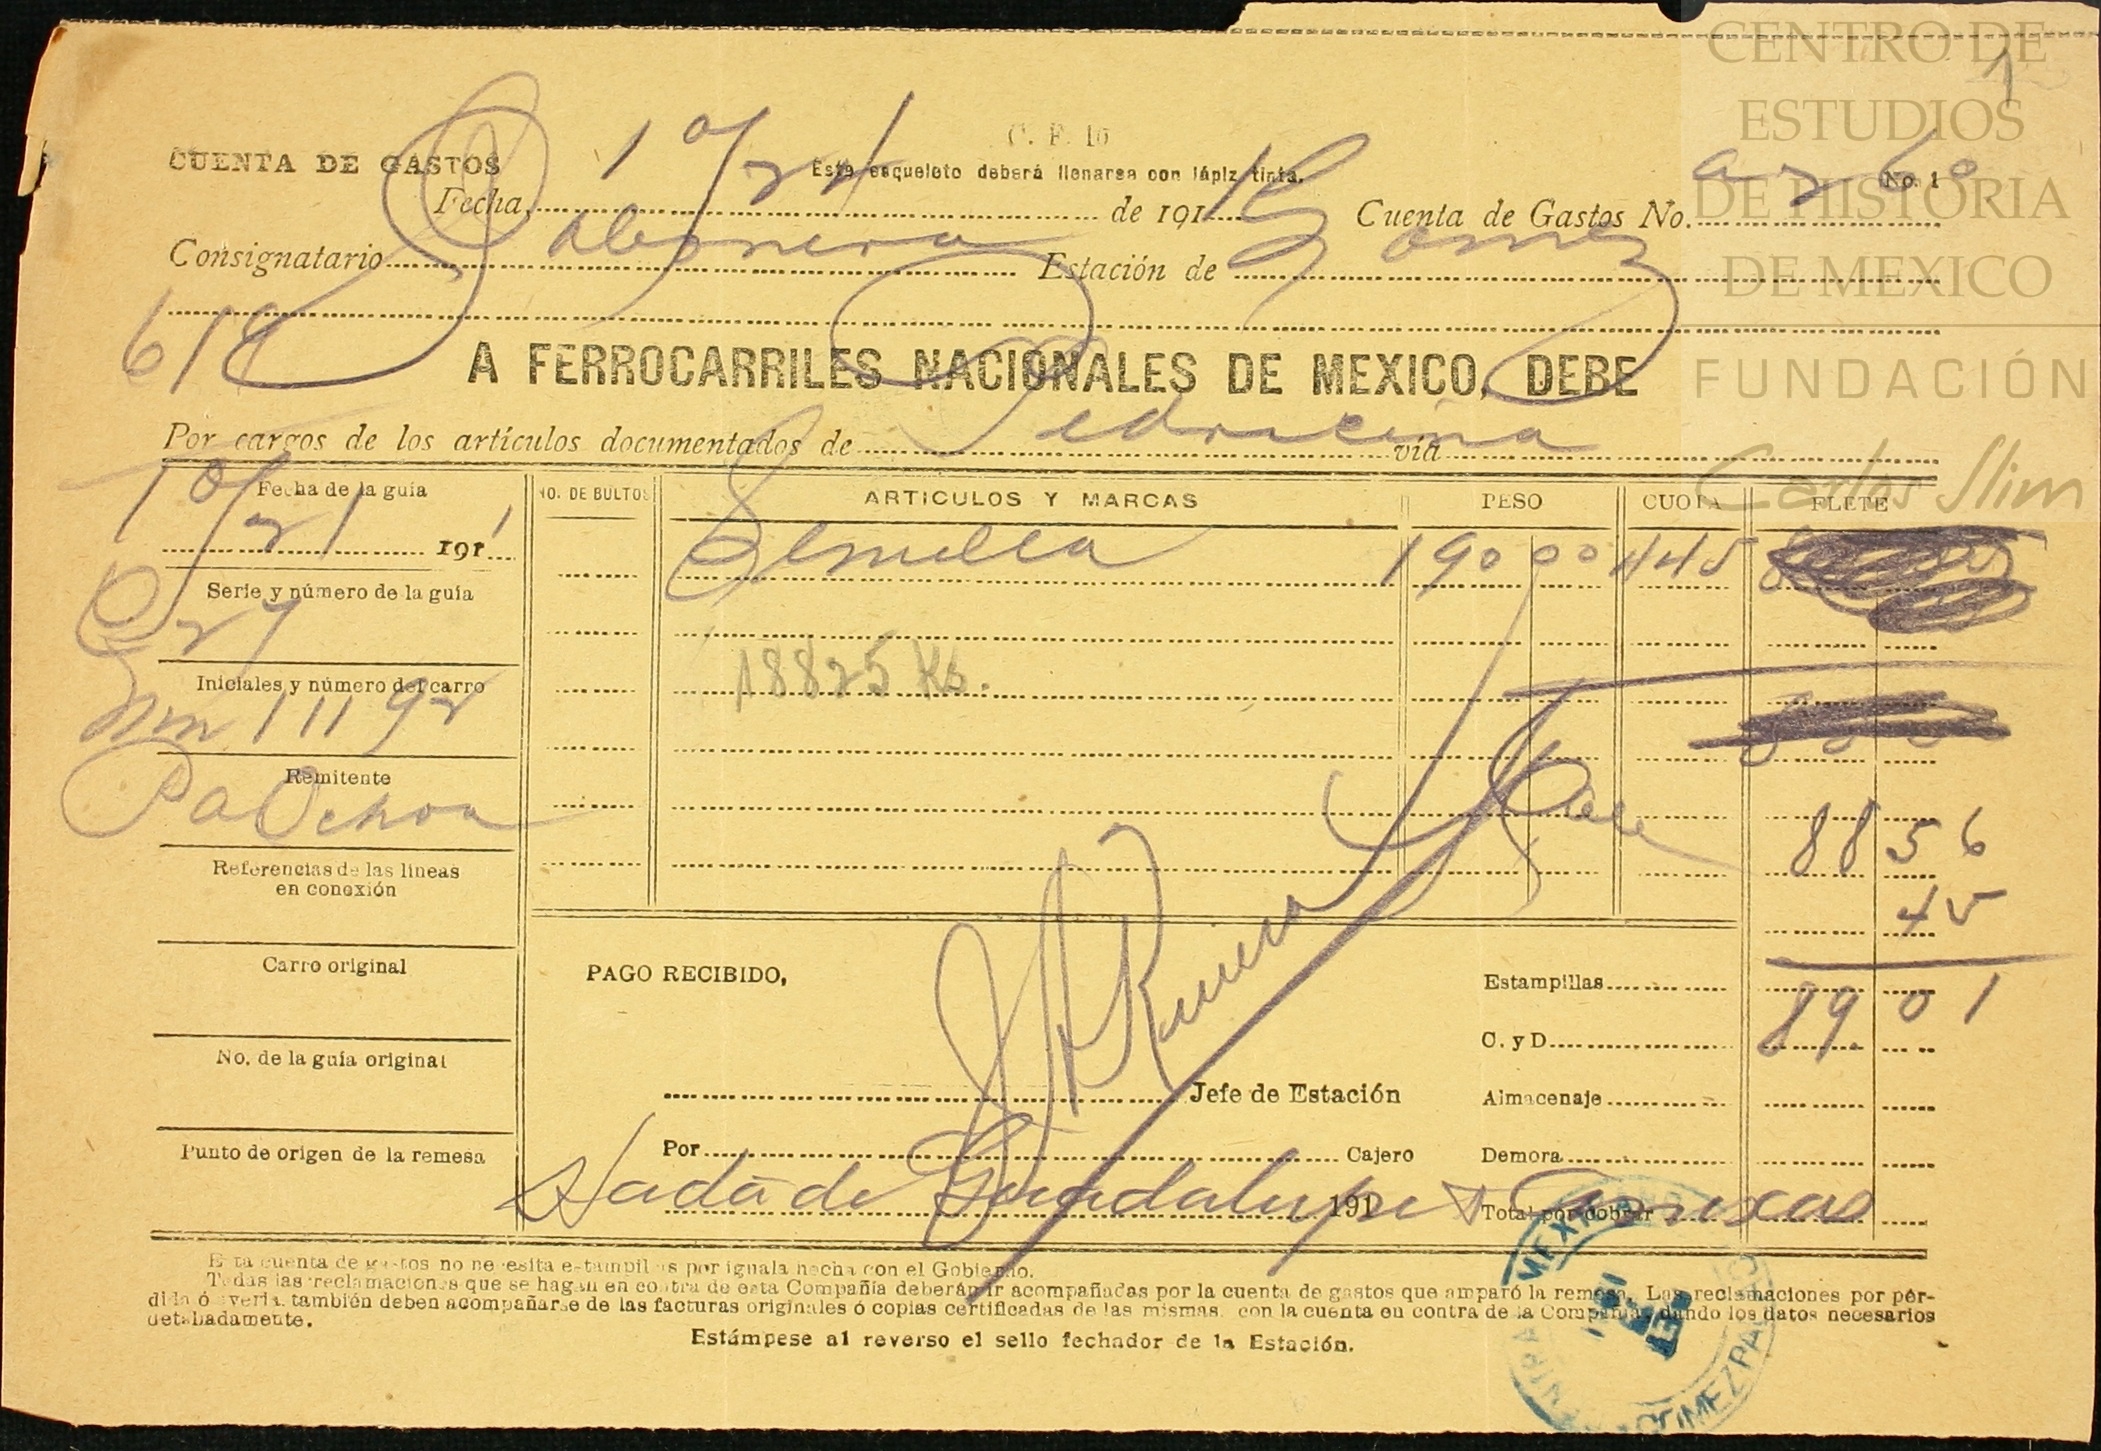 CENTRO DE
ESTUDIOS
DE HISTORIA
DE MEXICO
FUNDACIÓN
Carlos Slim
1
C. F. 10
CUENTA DE GASTOS
Este esqueleto deberá llenarse con lápiz tinta.
No. 1
Fecha 10/24 de 191 Cuenta de Gastos No.
Consignatario Jabonera Estación de Gomez
618
A FERROCARRILES NACIONALES DE MEXICO, DEBE
Por cargos de los artículos documentados de Pedriceña vía
Fecha de la guía
10/21 1911
NO. DE BULTOS ARTICULOS Y MARCAS PESO CUOTA FLETE
Semilla 190 00 445
Serie y número de la guía
27
18825 Ks.
Iniciales y número del carro
Nm 11192
Remitente
P a Ochoa
88 56
45
89. 01
Referencias de las líneas
en conexión
Carro original
No. de la guía original
Punto de origen de la remesa
PAGO RECIBIDO,
Jefe de Estación
Por Cajero
191
Estampillas
C. y D.
Almacenaje
Demora
Total por cobrar
de Guadalupe
Esta cuenta de gastos no necesita estampillas por iguala hecha con el Gobierno.
Todas las reclamaciones que se hagan en contra de esta Compañía deberán ir acompañadas por la cuenta de gastos que amparó la remesa. Las reclamaciones por pér-
dida ó avería, también deben acompañarse de las facturas originales ó copias certificadas de las mismas, con la cuenta en contra de la Compañía, dando los datos necesarios
detalladamente.
Estámpese al reverso el sello fechador de la Estación.